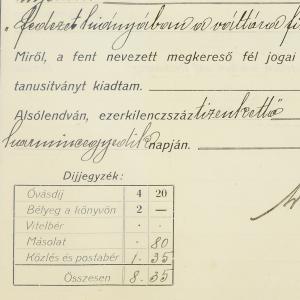 "fedezet hiányában a váltóra fi
Miről, a fent nevezett megkereső fél jogai
tanusitványt kiadtam.
Alsólendván, ezerkilenczszáz tizenkettő
harmincegyedik napján.
Dijjegyzék:
Óvásdíj 4 20
Bélyeg a könyvön 2 —
Vitelbér . .
Másolat . 80
Közlés és postabér 1. 35
Összesen 8. 35